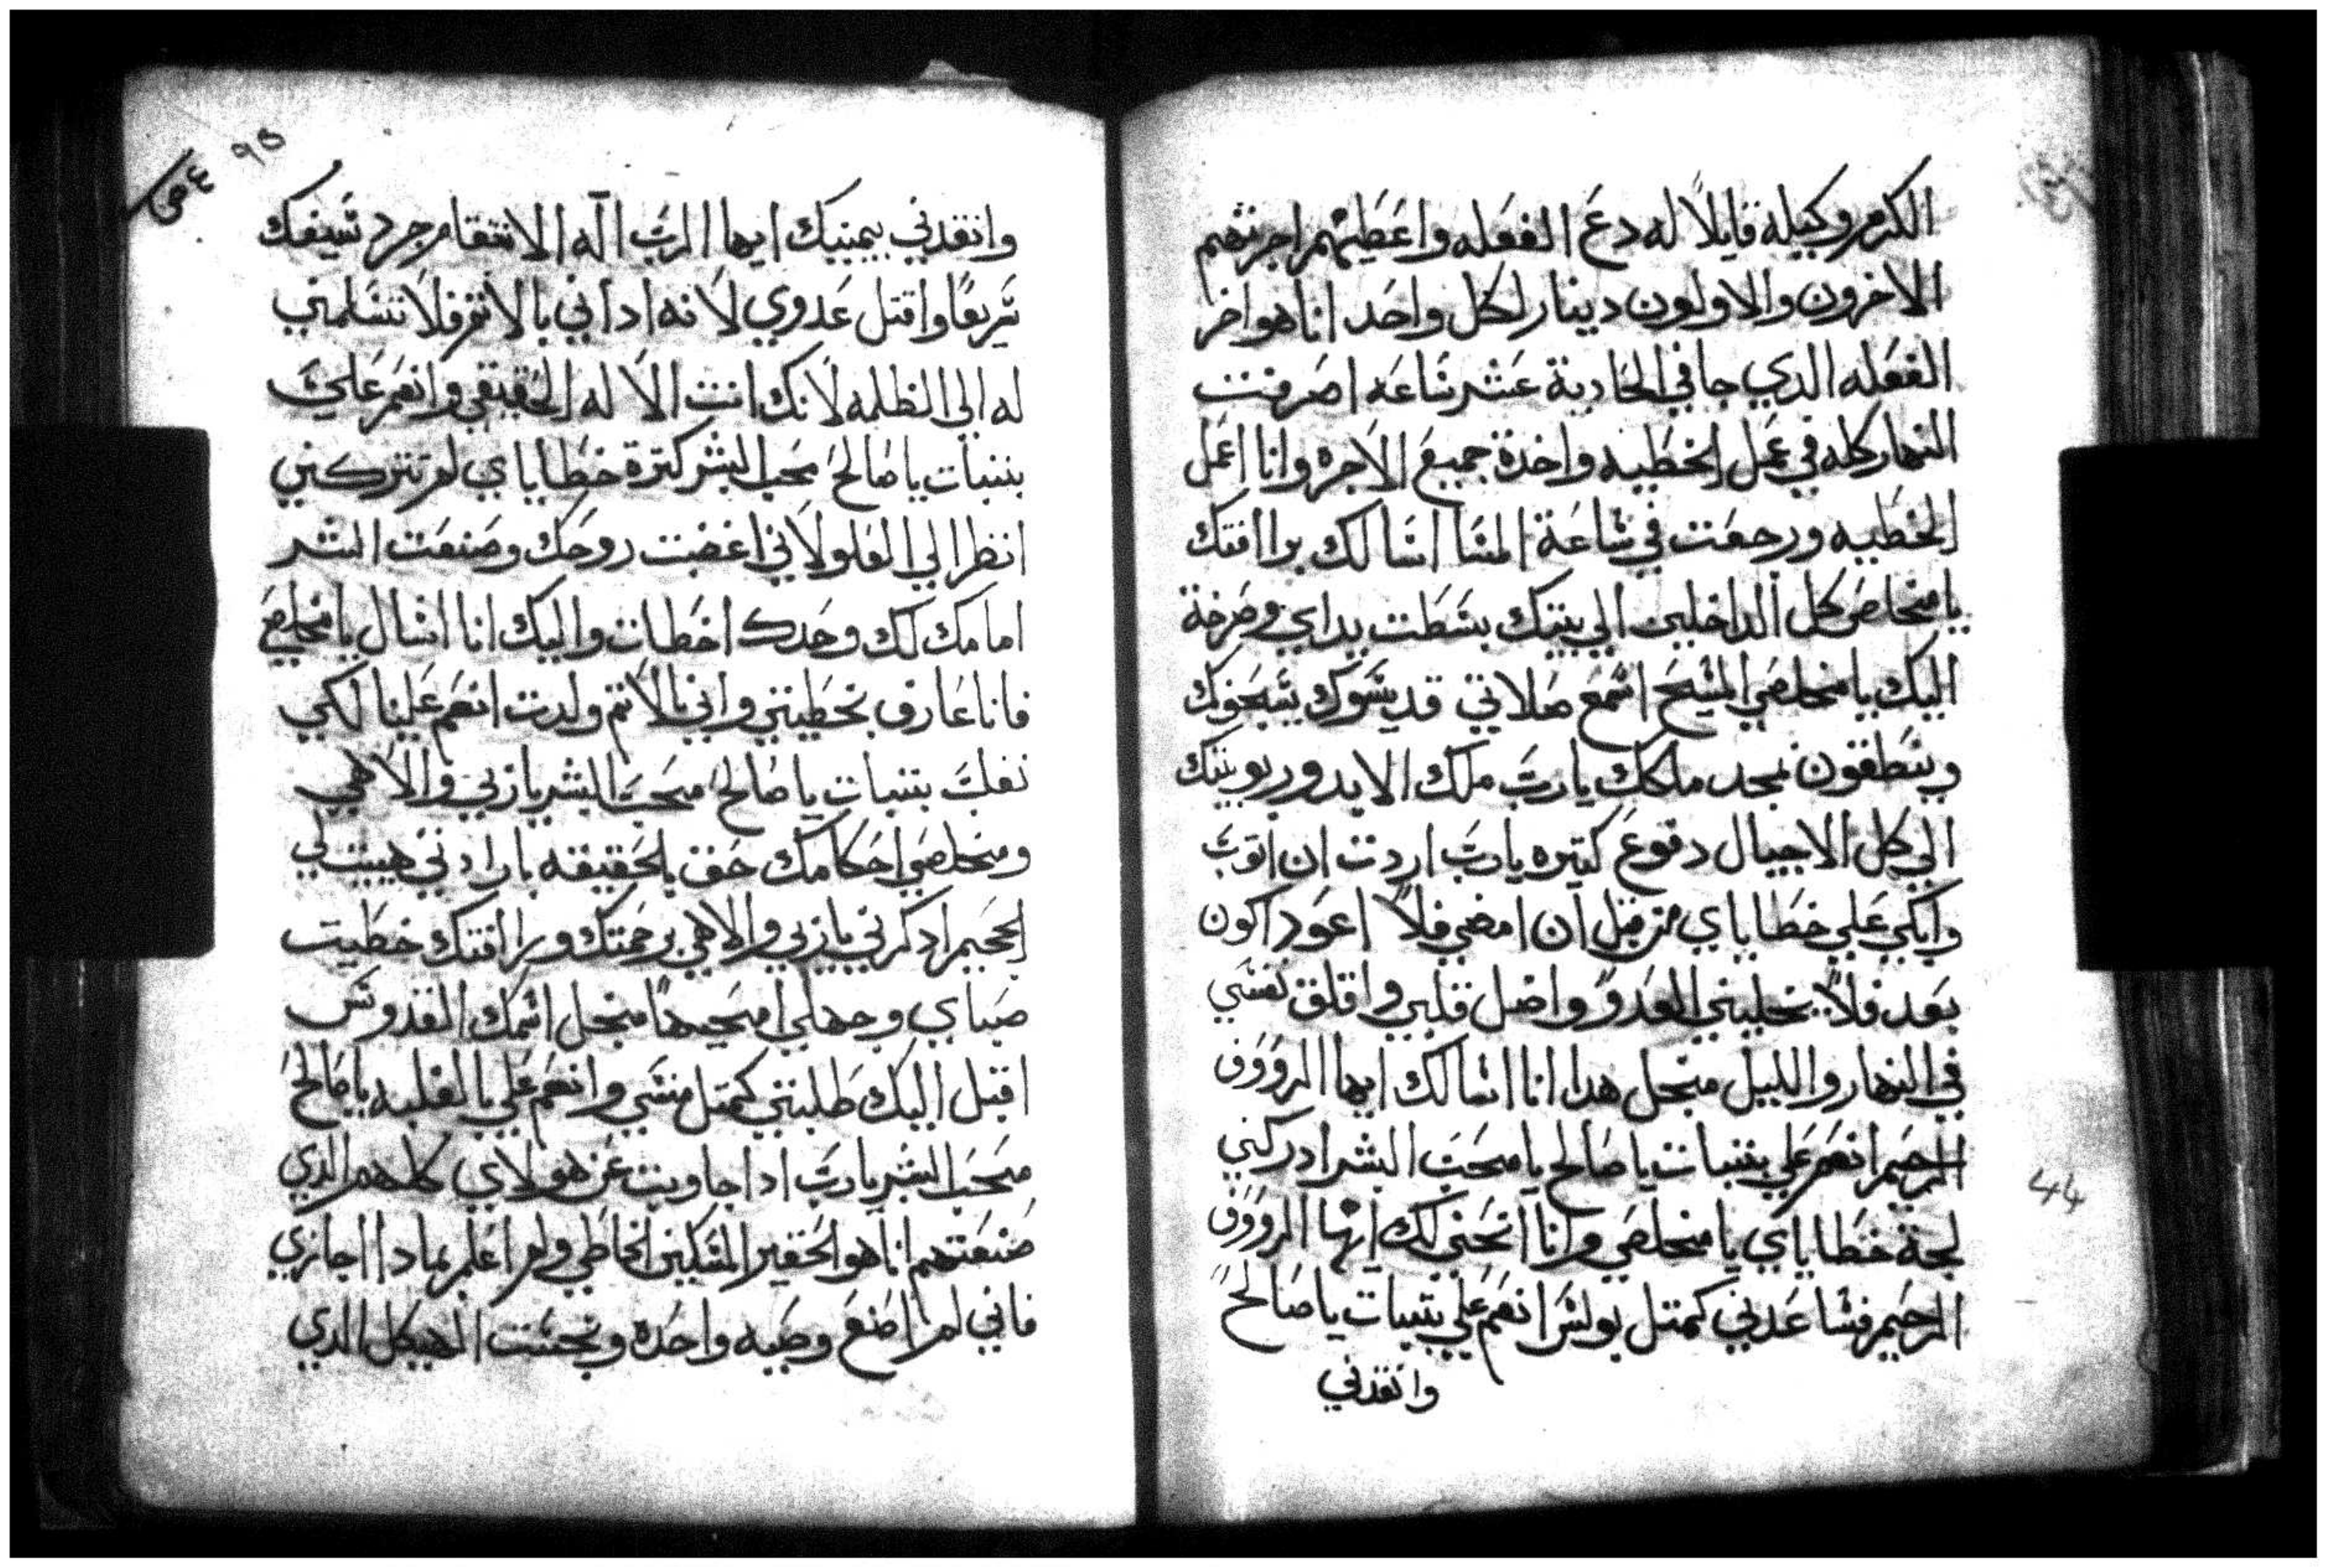 الكرم وكيله قايلاً له دع الفعله واعطيهم اجرتهم
الاخرون والاولون دينار لكل واحد انا هو اخر
الفعله الدي جا في الحادية عشر ساعه اصرفت
النهار كله في عمل الخطيه واخدة جميع الاجره وانا اعمل
الخطيه ورجعت في ساعة المسا اسالك برافتك
يا مخلص كل الداخلين الي بيتك بسطت يداي وصرخة
اليك يا مخلصي المسيح اسمع صلاتي قديسوك يسبحونك
وينطقون بمجد ملكك يارب ملك الابد وربوبيتك
الي كل الاجيال دفوع كتيره يارب اردت ان اتوب
وابكي علي خطاياي من قبل ان امضي فلا اعود اكون
بعد فلا يخليني العدو واضل قلبي واقلق نفسي
في النهار والليل منجل هدا انا اسالك ايها الرووف
الرحيم انعم علي بتبات يا صالح يا محب البشر ادركني
لجة خطاياي يا مخلصي وانا انحني لك ايها الرووف
الرحيم فساعدني كمتل بولس انعم علي بتبات يا صالح
وانقدني
٩٥
وانقدني بيمينك ايها الرب اله الانتقام جرد سيفك
سريعًا واقتل عدوي لانه اداني بالاتم فلا تسلمني
له الي الظلمه لانك انت الاله الحقيقي وانعم علي
بتبات يا صالح محب البشر كترة خطاياي لم تتركني
انظر الي العلو لاني اغضبت روحك وصنعت الشر
امامك لك وحدك اخطات واليك انا اسال يا مخلصي
فانا عارف بخطيتي واني بالاتم ولدت انعم علينا لكي
نغلب بتبات يا صالح محب البشر ياربي والاهي
ومخلصي احكامك حق بالحقيقه بارادتي هييت لي
الجحيم ادكرني ياربي والاهي برحمتك ورافتك خطيت
صباي وجهلي امحيها منجل اسمك القدوس
اقبل اليك طلبتي كمتل منسي وانعم علي بالغلبه يا صالح
محب البشر يارب ادا جاوبت عن هولاي كلهم الدي
صنعتهم انا هو الحقير المسكين الخاطي ولم اعلم بمادا اجازي
فاني لم اصنع وصيه واحده ونجست الهيكل الدي
44